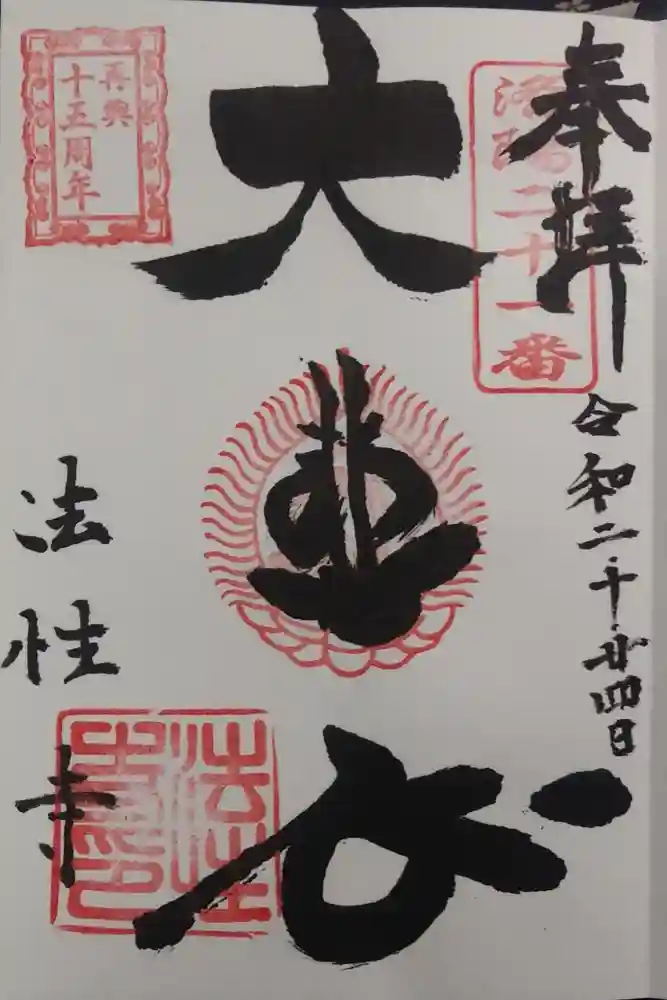 奉拝
令和二・十・廿四日
洛陽二十一番
大悲
再興
十五周年
法性寺
法性
寺印